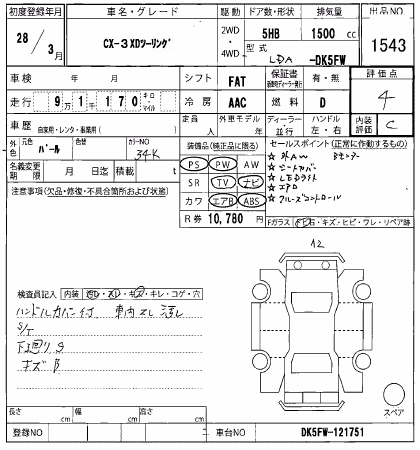 初度登録年月 車名・グレード 駆動 ドア数・形状 排気量 出品NO
28年/3月 CX-3 XDツーリング 2WD・4WD 5HB 1500cc 1543
型式 LDA -DK5FW
車検 年 月 シフト FAT 保証書 有・無 評価点
走行 9万1千170 キロ・マイル 冷房 AAC 燃料 D 4
車歴 自家用・レンタ・事業用( ) 定員 人 外車モデル 年 ディーラー・並行 ハンドル 左・右 内装評価 C
外色 元色 パール 色替 カラーNO 34K
装備品(純正品に限る) セールスポイント(正常に作動するもの)
PS PW AW
名義変更期限 月 日迄 積載 t
SR TV ナビ
★シートカバー
★LEDライト
注意事項(欠品・修復・不具合箇所および状態)
カワ エアB ABS
★クルーズコントロール
R券 10,780円 Fガラス 石・キズ・ヒビ・ワレ・リペア跡
A2
検査員記入 内装 キレ・コゲ・穴
ハンドルカバー付 車内スレ汚レ
下廻りS
キズB
スペア
長さ cm 幅 cm 高さ cm
登録NO 車台NO DK5FW-121751